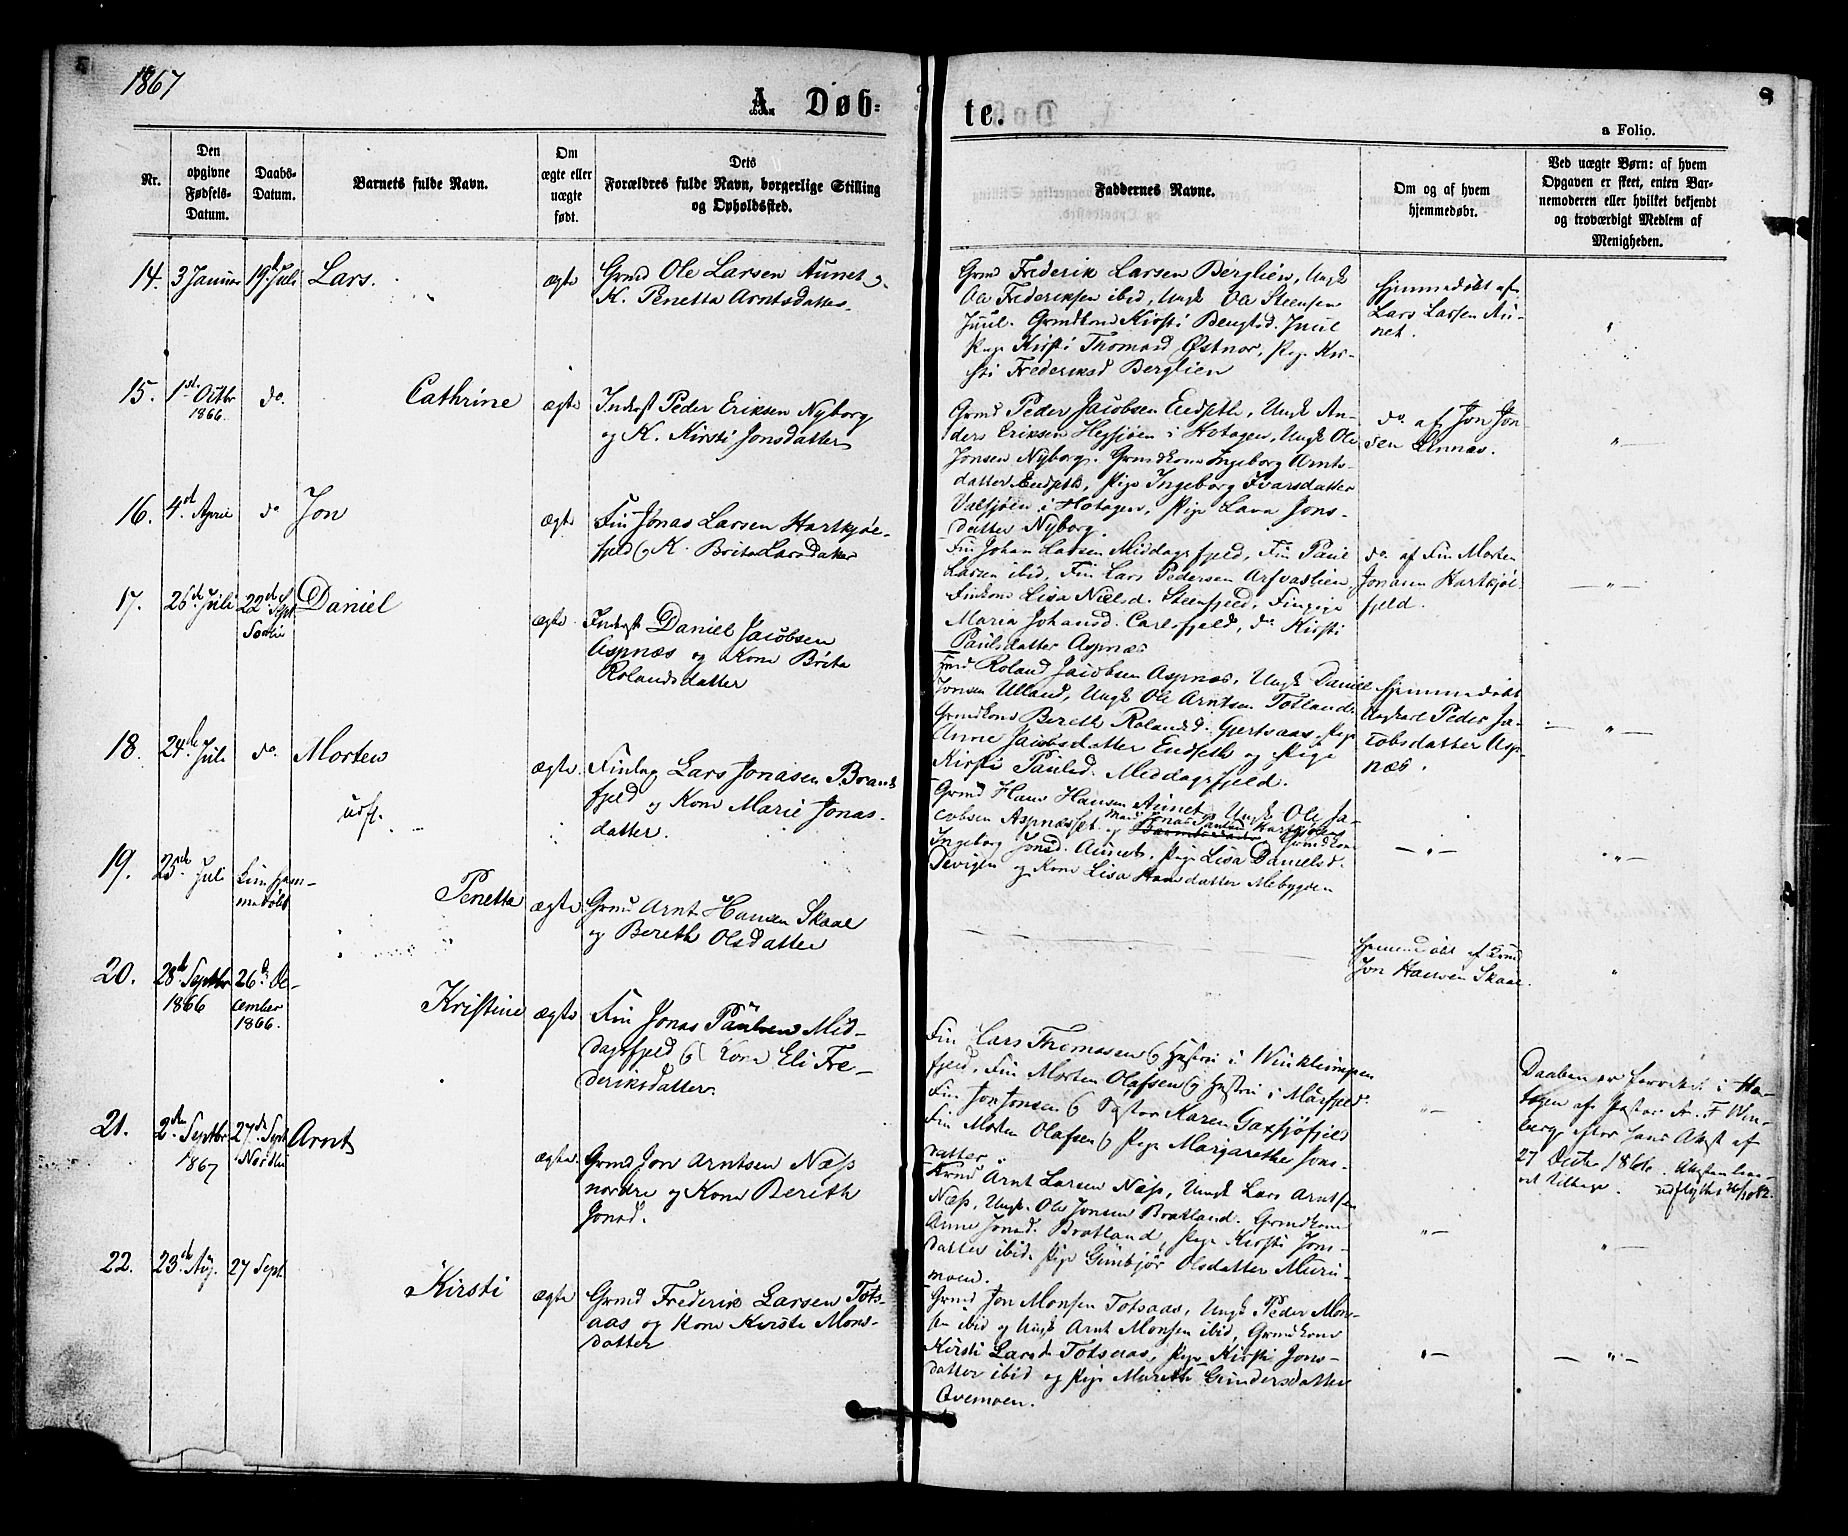 1867
8
A. Døb-
te.
a Folio.
Nr.
Den
opgivne
Fødsels-
Datum.
Daabs-
Datum.
Barnets fulde Navn.
Om
ægte eller
uægte
født.
Dets
Forældres fulde Navn, borgerlige Stilling
og Opholdssted.
Faddernes Navne.
Om og af hvem
hjemmedøbt.
Ved uægte Børn: af hvem
Opgaven er skeet, enten Bar-
nemoderen eller hvilket bekjendt
og troværdigt Medlem af
Menigheden.
14.
3 Januar
19de Juli
Lars.
ægte
Grmd Ole Larsen Aunet og
K. Penetta Arntsdatter.
Grmd Frederik Larsen Berglien, Ungk
Ole Frederiksen ibid, Ungk Ole Steensen
Juul. Grmdkone Kirsti Bengtsd. Juul
Pige Kirsti Thomasd Østnor, Pige Kir-
sti Frederiksd Berglien
Hjemmedøbt af
Lars Larsen Au-
net.
"
15.
1st Octbr
1866.
do.
Cathrine
ægte
Inderst Peder Eriksen Nyborg
og K. Kirsti Jonsdatter
Grmd Peder Jacobsen Endseth, Ungk An-
ders Eriksen Hegsjøen i Hotagen, Ungk Ole
Jonsen Nyborg. Grmdkone Ingeborg Arnts-
datter Endseth, Pige Ingeborg Ivarsdatter
Valsjøen i Hotagen, Pige Lava Jons-
datter Nyborg.
do. af Jon Jon-
sen Linnæs.
"
16.
4de April
do
Jon
ægte
Fin Jonas Larsen Hartkjøl-
fjeld og K. Brita Larsdatter
Fin Johan Larsen Middagsfjeld, Fin Paul
Larsen ibid, Fin Lars Pedersen Arfvaslien,
Finkone Lisa Nielsd. Steenfjeld, Finpige
Maria Johansd. Carlsfjeld, do Kirsti
Paulsdatter Aspnæs
do. af Fin Morten
Jonasen Hartkjøl
fjeld.
"
17.
26de Juli
22de Sept
Sørli
Daniel
ægte
Inderst Daniel Jacobsen
Aspnæs og Kone Brita
Rolandsdatter
Grmd Roland Jacobsen Aspnæs, Ungk Daniel
Jonsen Ulland, Ungk Ole Arntsen Totland
Grmdkone Bereth Rolandsd. Gjertsaas, Pige
Anne Jacobsdatter Endseth og Pige
Kirsti Paulsd. Middagsfjeld.
Hjemmedøbt
Ungkarl Peder Ja-
cobsdatter Asp
næs.
"
18.
24de Juli
do.
Morten
udfl.
ægte
Finlap Lars Jonasen Brand
fjeld og Kone Marie Jonas-
datter.
Grmd Hans Hansen Aunet, Ungk Ole Ja-
cobsen Aspnæsset og Hartkjølens Grmdkone
Ingeborg Jonsd. Aunet, Pige Lisa Danielsd.
Devigen og Kone Lisa Hansdatter Mebygden
"
"
19.
25de Juli
Kun hjem-
medøbt
Penetta
ægte
Grmd Arnt Hansen Skaae
og Bereth Olsdatter
Hjemmedøbt af Grmd
Jon Hansen Skaae.
"
20.
28de Septbr
1866
26de De-
cember
1866.
Kristine
ægte
Fin Jonas Paulsen Mid-
dagsfjeld og Kone Eli Fre-
deriksdatter.
Fin Lars Thomassen og Hustru i Winklumpen
fjeld, Fin Morten Olafsen og Hustru i Mursfjeld.
Fin Jon Jonsen og Søster Karen Gaxsjøfjeld
Fin Morten Olafsen og Pige Margarethe Jons-
datter.
"
Daaben er forrettet i Ho-
tagen af Pastor A. F. Win-
berg efter hans Attest af
27 Decbr 1866.
udflyttet
21.
2den Septbr
1867
27de Sept
Nordli
Arnt
ægte
Grmd Jon Arntsen Næss
nordre og Kone Bereth
Jonsd.
Grmd Arnt Larsen Næss, Ungk Lars Arntsen
Næss, Ungk. Ole Jonsen Bratland. Grmdkone
Anne Jonsd. Bratland, Pige Kirsti Jons-
datter ibid. Pige Gunbjør Olsdatter Muru-
moen.
"
"
22.
23de Aug.
27 Sept.
Kirsti
ægte
Grmd Frederik Larsen Tots-
aas og Kone Kirsti Mons-
datter
Grmd Jon Monsen Totsaas, Ungk Peder Mon-
sen ibid og Ungk Arnt Monsen ibid, Grmdkone
Kirsti Larsd Totsaas, Pige Kirsti Jons-
datter ibid og Pige Mereth Gundersdatter
Qvemoen.
"
"